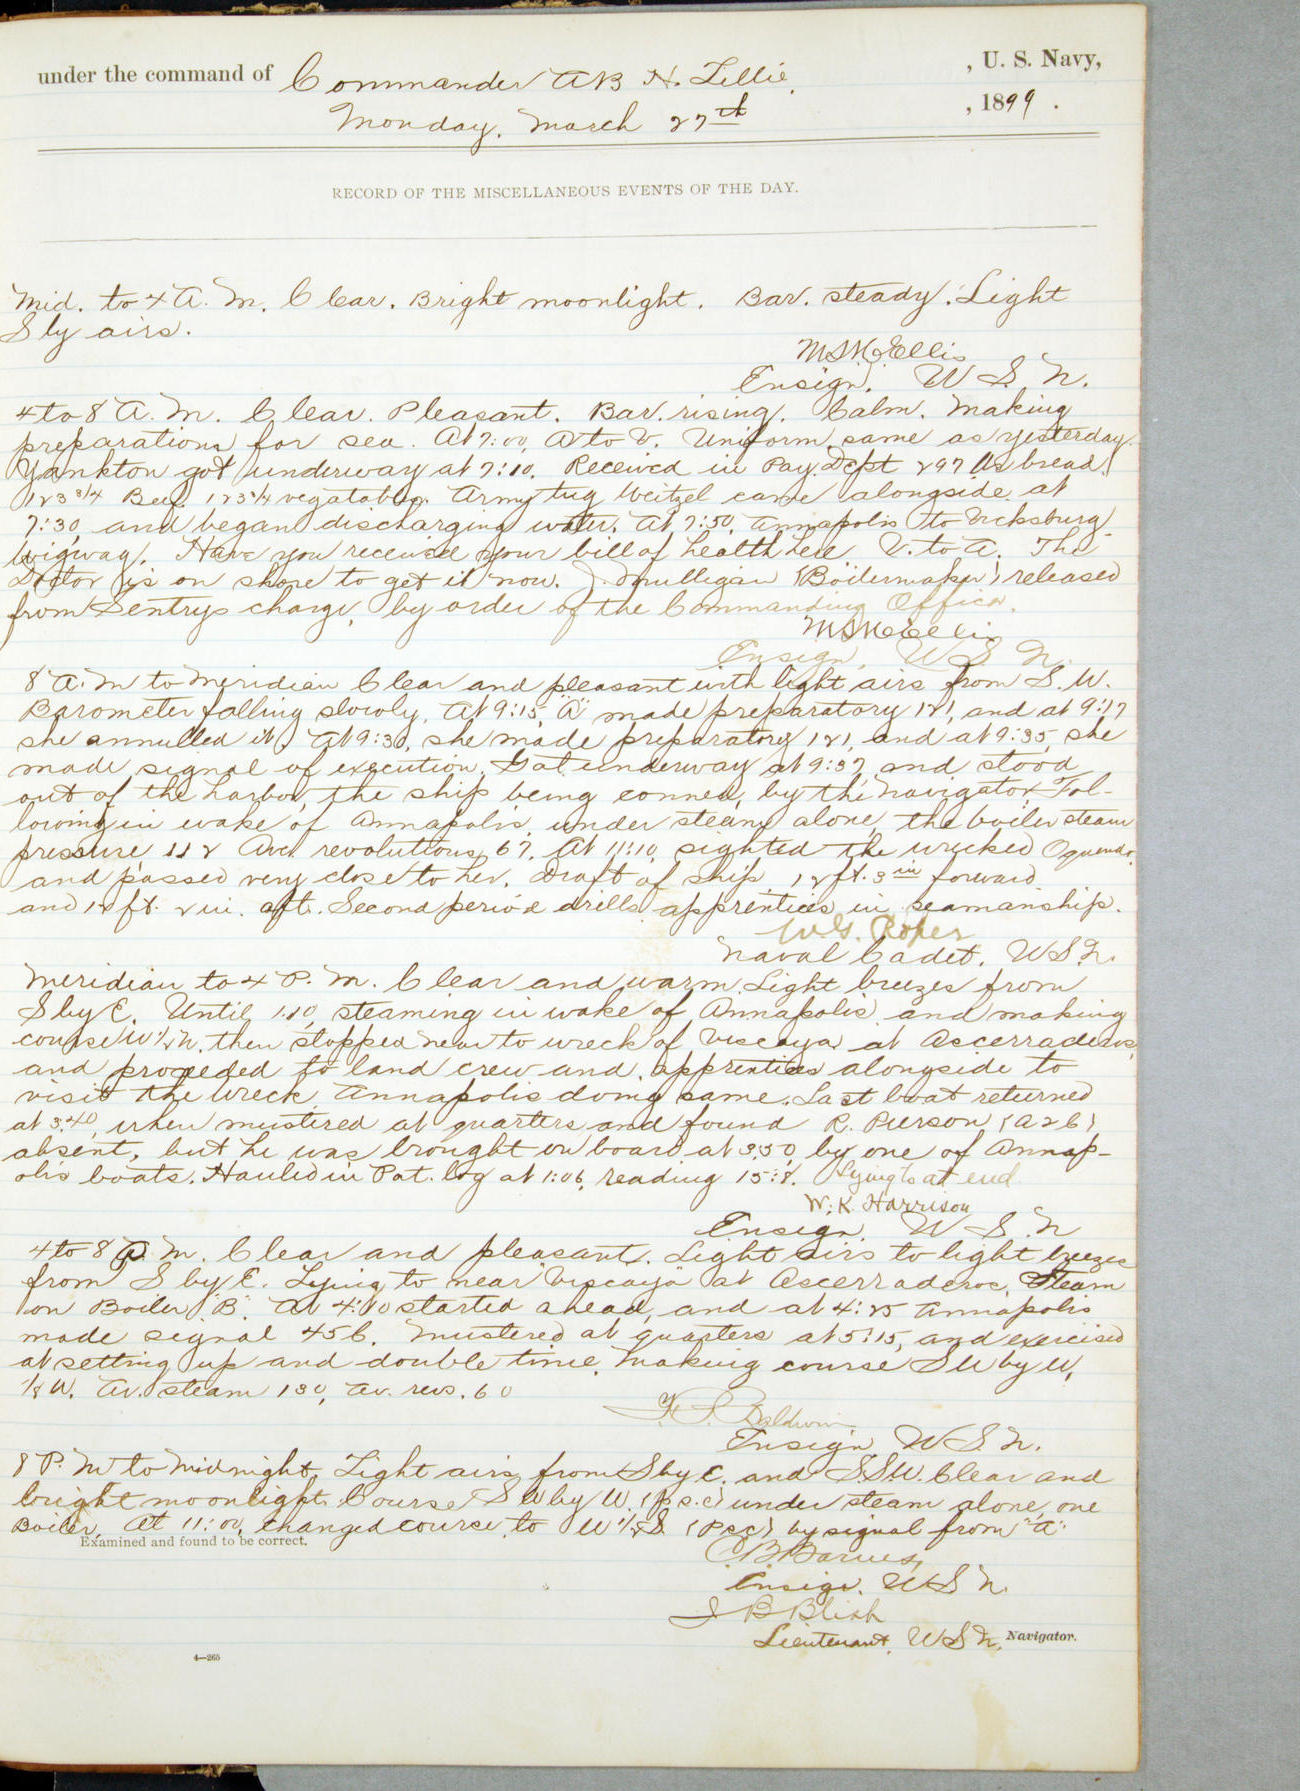 under the command of Commander A B H. Lillie, , U. S. Navy,
Monday, March 27th , 1899.
RECORD OF THE MISCELLANEOUS EVENTS OF THE DAY.
Mid. to 4 A. M. Clear. Bright moonlight. Bar. steady. Light
Sly airs.
Ensign, U S. N.
4 to 8 A. M. Clear. Pleasant. Bar. rising. Calm. Making
preparations for sea. At 7:00, A to V. Uniform same as yesterday.
Yankton got underway at 7:10. Received in Pay. Dept 297 lbs bread.
123 3/4 Beef. 123 3/4 vegatables. Army tug Weitzel came alongside at
7:30, and began discharging water. At 7:50, Annapolis to Vicksburg
wigwag. Have you received your bill of health here V. to A. The
Doctor is on shore to get it now. J. Mulligan (Boilermaker) released
from Sentrys charge, by order of the Commanding Officer.
Ensign, U S N.
8 A. M to Meridian Clear and pleasant with light airs from S. W.
Barometer falling slowly. At 9:15, "A" made preparatory 121, and at 9:17
she annulled it. At 9:30, she made preparatory 121, and at 9:35, she
made signal of execution. Got underway at 9:37, and stood
out of the harbor, the ship being conned by the navigator. Fol-
lowing in wake of Annapolis, under steam alone, the boiler steam
pressure 112 Ave. revolutions 67. At 11:10, sighted the wrecked Oquendo,
and passed very close to her. Draft of ship, 12 ft. 3 in forward
and 12 ft. 2 in. aft. Second period drills apprentices in seamanship.
W. G. Roper
Naval Cadet, U S. N.
Meridian to 4 P. M. Clear and warm. Light breezes from
S by E. Until 1:10, steaming in wake of Annapolis and making
course W 1/2 N. then stopped near to wreck of Viscaya at Ascerraderos,
and proceeded to land crew and apprentices alongside to
visit the wreck Annapolis doing same. Last boat returned
at 3:40, when mustered at quarters and found R. Pierson (A 2 C)
absent, but he was brought on board at 3:50, by one of Annap-
olis boats. Hauled in Pat. log at 1:06, reading 15:8. Lying to at end
W. K. Harrison
Ensign, U S. N
4 to 8 P. M. Clear and pleasant. Light airs to light breezes
from S by E. Lying to near "Viscaya" at Ascerraderos. Steam
on Boiler "B". At 4:10 started ahead, and at 4:25 Annapolis
made signal 456. Mustered at quarters at 5:15, and exercised
at setting up and double time. Making course S W by W,
1/8 W. Av. steam 130, Av. revs. 60
Baldwin
Ensign U S. N.
8 P. M to Midnight. Light airs from S by E. and S.S.W. Clear and
bright moonlight. Course S W by W. (p.s.c) under steam alone, one
Boiler. At 11:00, changed course to W 1/2 S. (Psc) by signal from "A".
Examined and found to be correct.
C. B. Barnes,
Ensign. U S N.
J B Blish
Lieutenant, U S N, Navigator.
4—265